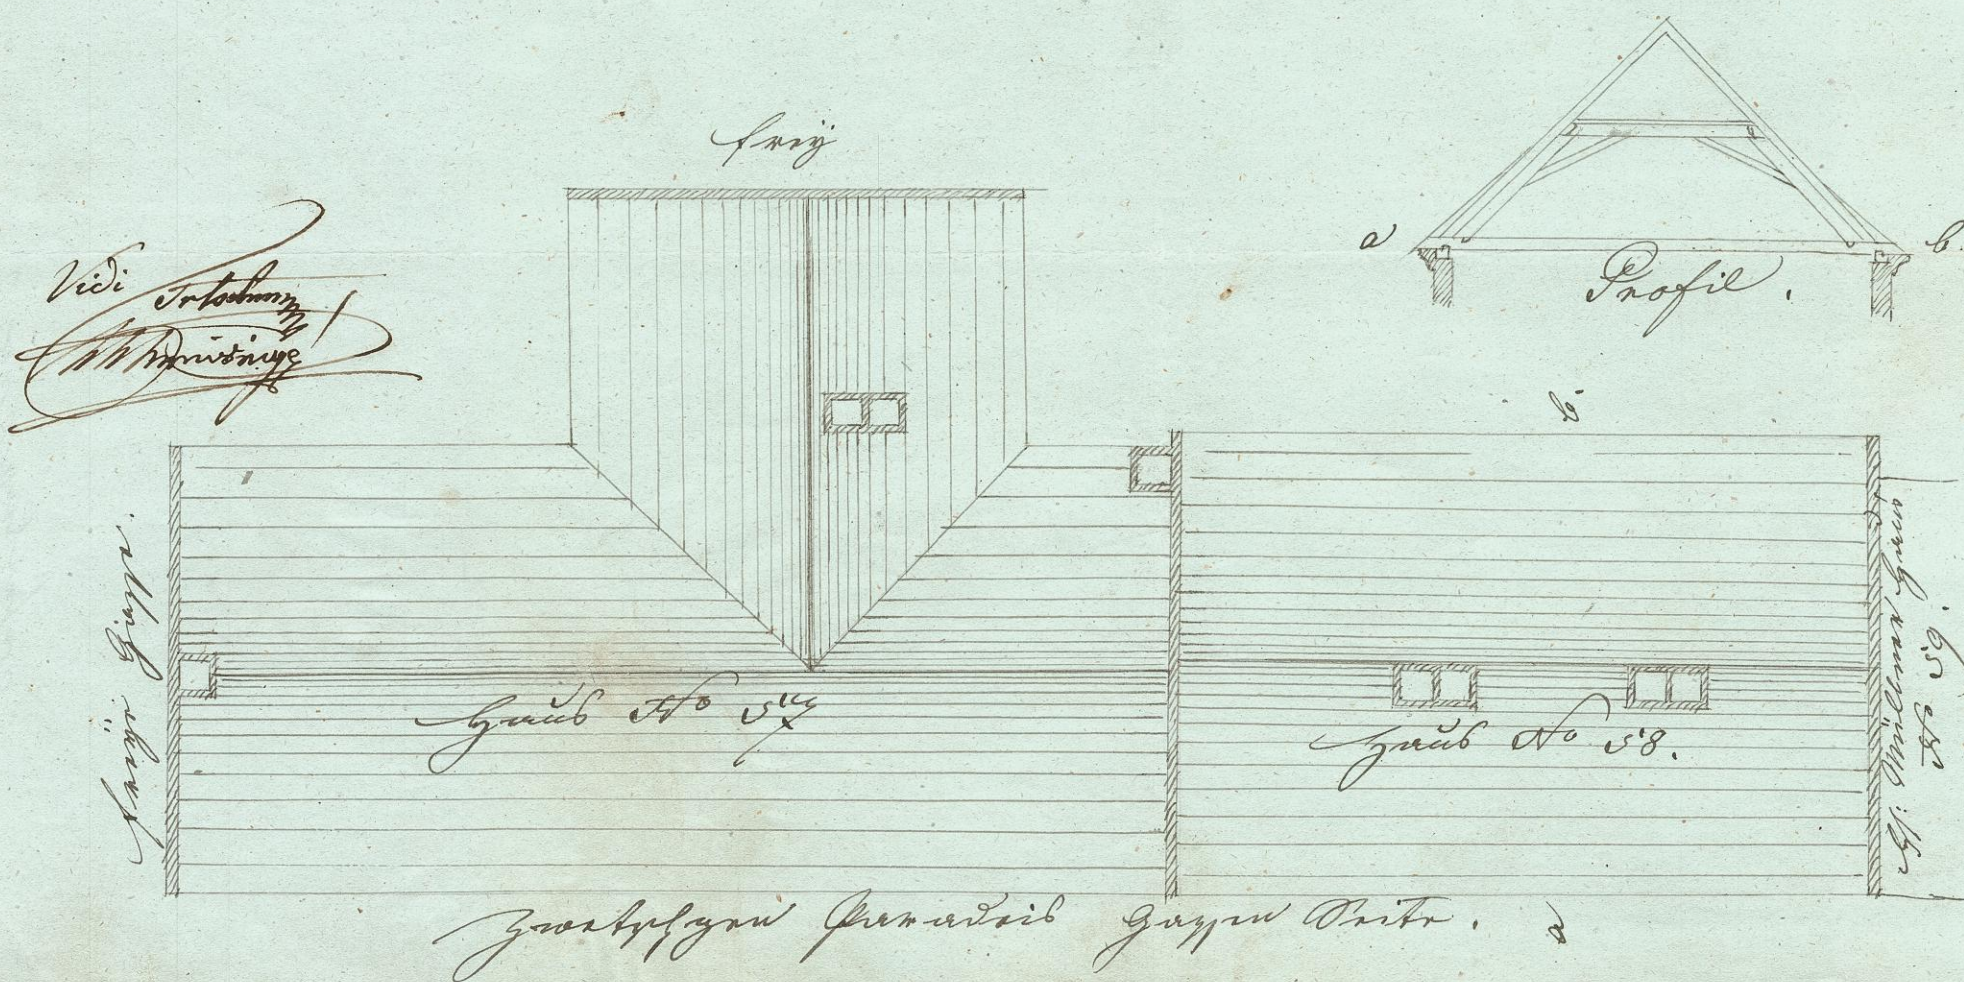 freÿ
a
b.
Profil.
Vidi
b
freÿe Gasse.
Haus No 57
Haus No 58.
No 56.
Zwetschgen Paradeis Gassen Seite.
a